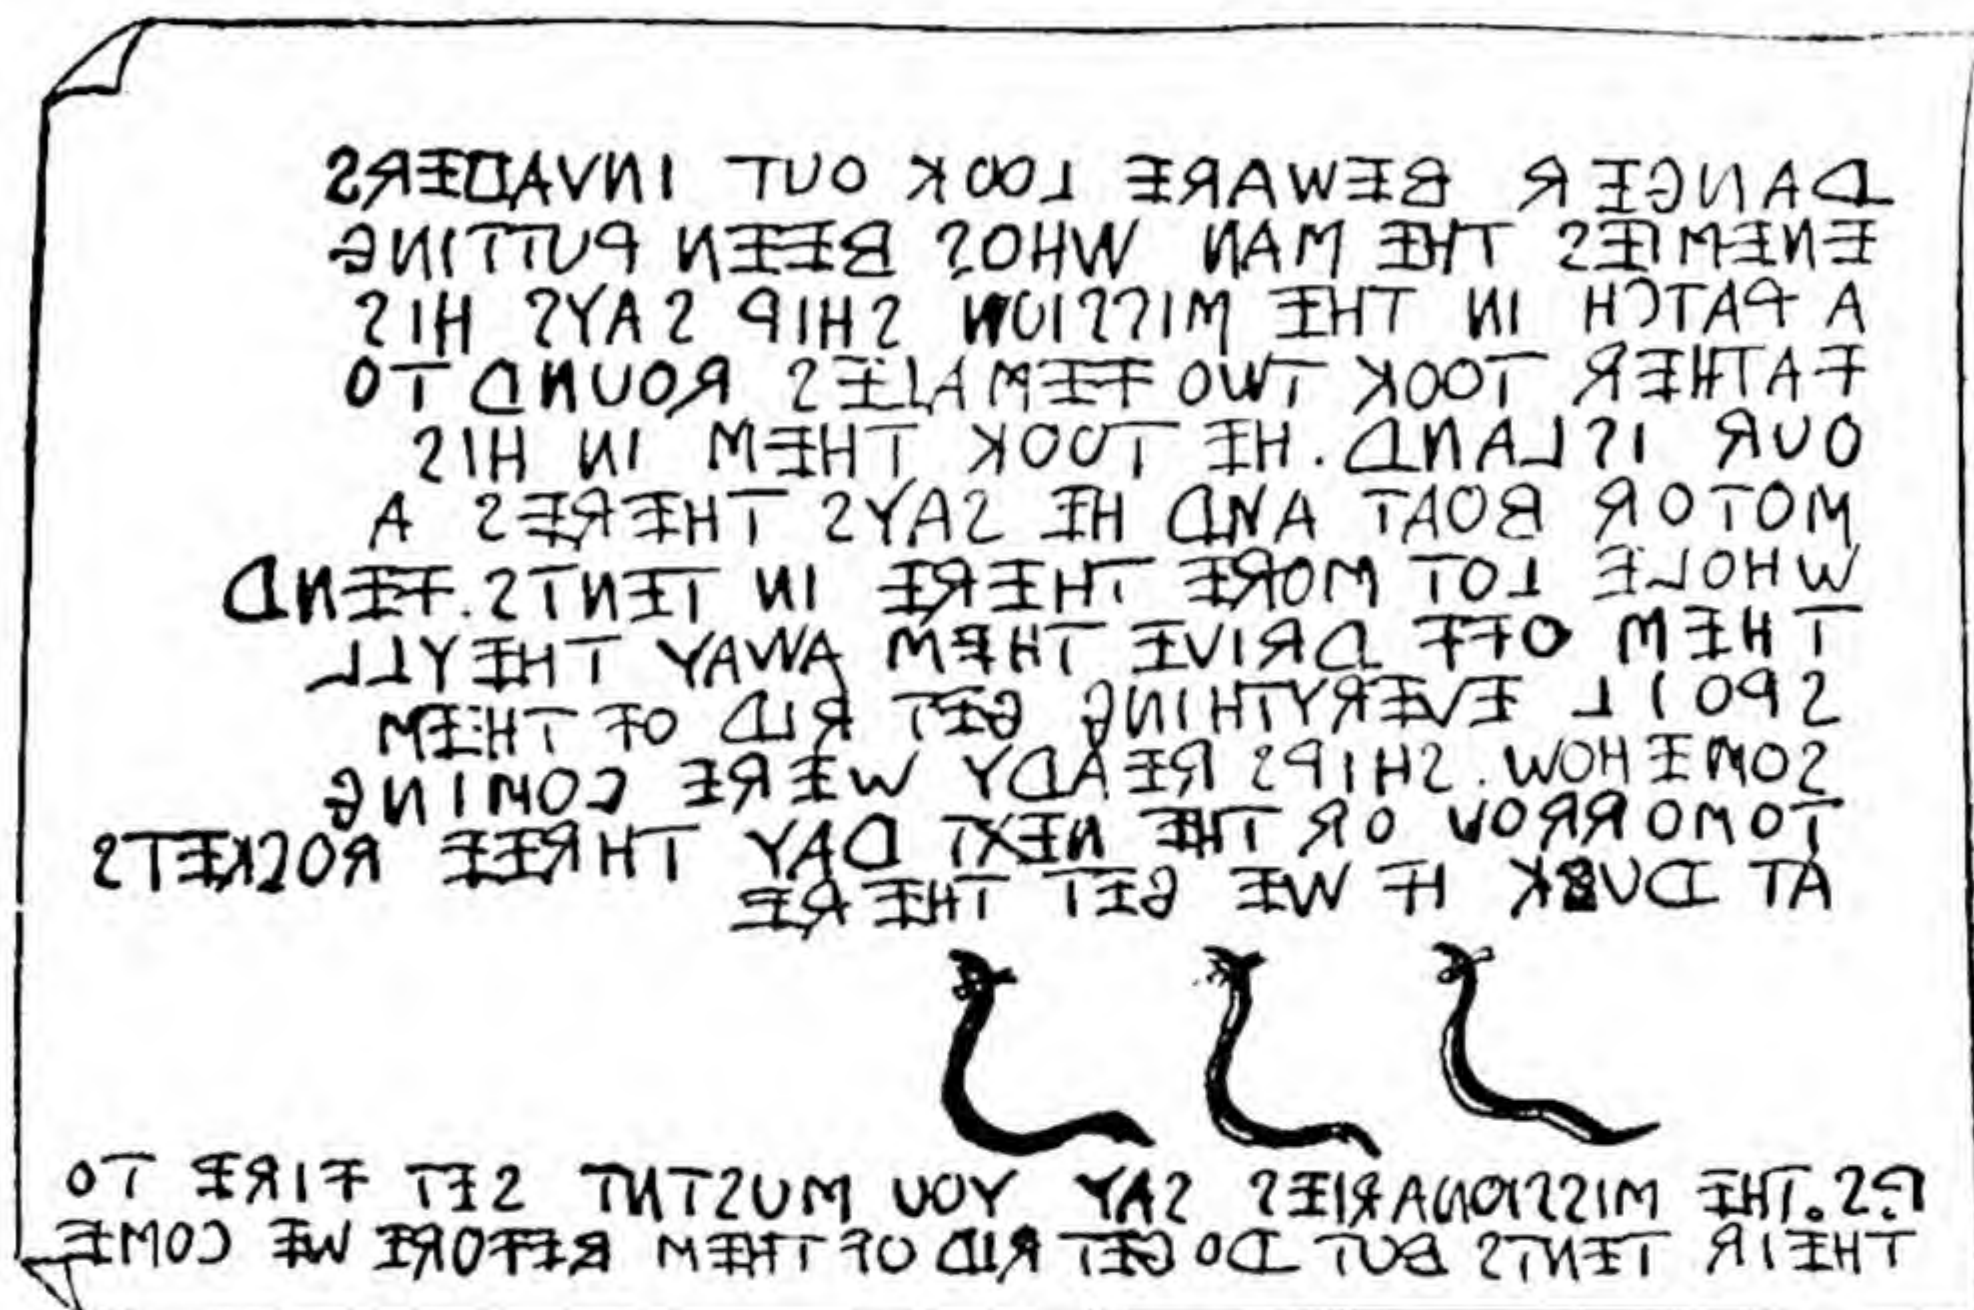 DANGER BEWARE LOOK OUT INVADERS
ENEMIES THE MAN WHOS BEEN PUTTING
A PATCH IN THE MISSION SHIP SAYS HIS
FATHER TOOK TWO FEMALES ROUND TO
OUR ISLAND. HE TOOK THEM IN HIS
MOTOR BOAT AND HE SAYS THERES A
WHOLE LOT MORE THERE IN TENTS. FEND
THEM OFF DRIVE THEM AWAY THEYLL
SPOIL EVERYTHING GET RID OF THEM
SOMEHOW. SHIPS READY WERE COMING
TOMORROW OR THE NEXT DAY THREE ROSKETS
AT DUSK IF WE GET THERE
P.S. THE MISSIONARIES SAY YOU MUSTNT SET FIRE TO
THEIR TENTS BUT DO GET RID OF THEM BEFORE WE COME